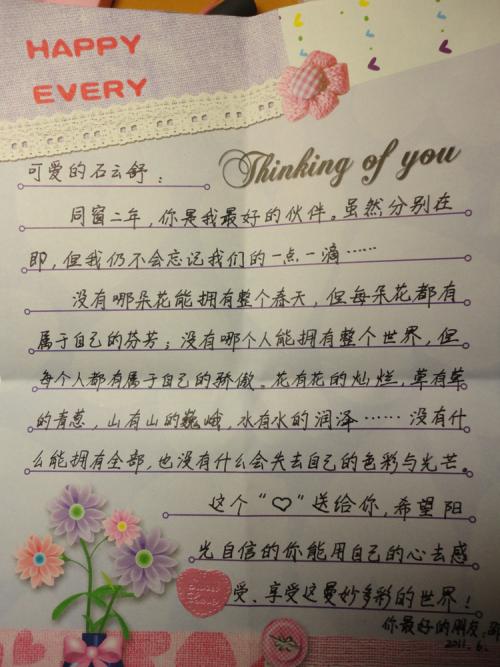 HAPPY
EVERY
Thinking of you
可爱的石云舒：
同窗二年，你是我最好的伙伴。虽然分别在
即，但我仍不会忘记我们的一点一滴……
没有哪朵花能拥有整个春天，但每朵花都有
属于自己的芬芳；没有哪个人能拥有整个世界，但
每个人都有属于自己的骄傲。花有花的灿烂，草有草
的青葱，山有山的巍峨，水有水的润泽……没有什
么能拥有全部，也没有什么会失去自己的色彩与光芒。
这个“♡”送给你，希望阳
光自信的你能用自己的心去感
受、享受这曼妙多彩的世界！
你最好的朋友，
2011.6.